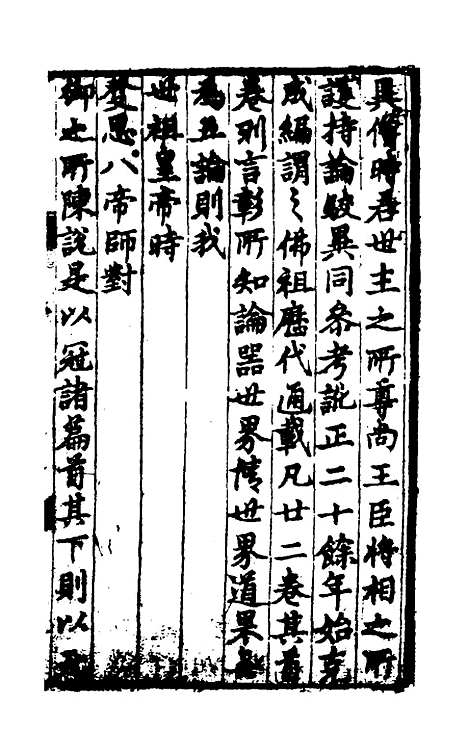 異僧時君世主之所尊尚王臣將相之所
護持論駁異同參考訛正二十餘年始克
成編謂之佛祖歷代通載凡廿二卷其首
卷則言彰所知論器世界情世界道果無
為五論則我
世祖皇帝時
發思八帝師對
御之所陳說是以冠諸篇首其下則以